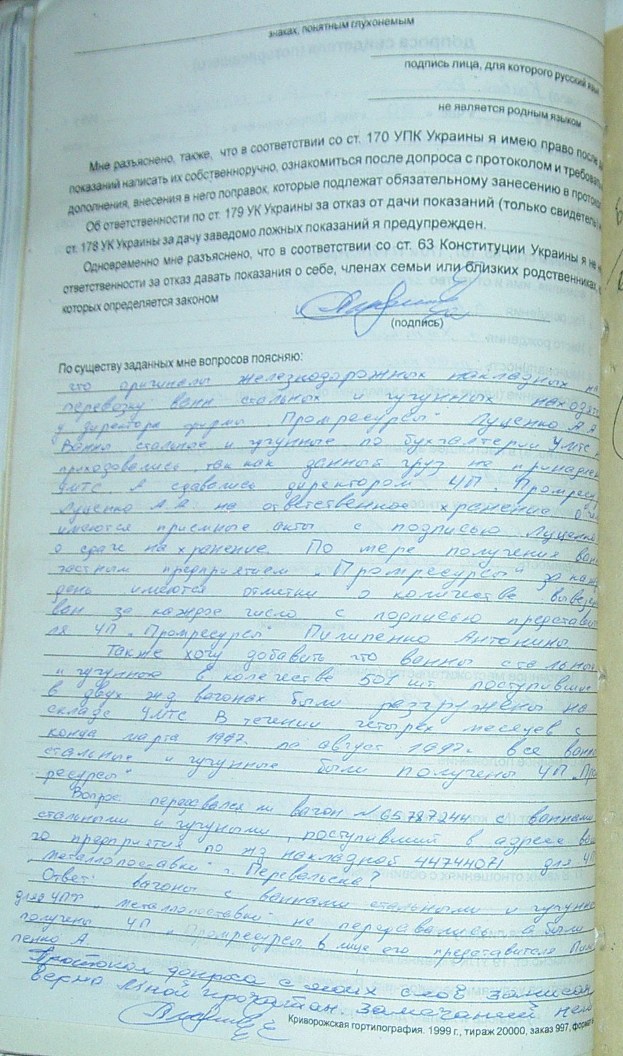 знаках, понятным глухонемым
подпись лица, для которого русский язык
не является родным языком
Мне разъяснено, также, что в соответствии со ст. 170 УПК Украины я имею право после
показаний написать их собственноручно, ознакомиться после допроса с протоколом и требовать
дополнения, внесения в него поправок, которые подлежат обязательному занесению в проток
Об ответственности по ст. 179 УК Украины за отказ от дачи показаний (только свидетель)
ст. 178 УК Украины за дачу заведомо ложных показаний я предупрежден.
Одновременно мне разъяснено, что в соответствии со ст. 63 Конституции Украины я не
ответственности за отказ давать показания о себе, членах семьи или близких родственниках,
которых определяется законом
(подпись)
По существу заданных мне вопросов поясняю:
что оригиналы железнодорожных накладных на
перевозку ванн стальных и чугунных находятс
у директора фирмы Промресурсы" Луценко А.А.
Ванны стальные и чугунные по бухгалтерии УМТС
приходовались, так как данный груз не принадлеж
УМТС. А сдавались директором ЧП „Промресур
Луценко А.А. на ответственное хранение о чем
имеются приемные акты с подписью Луценко
о сдаче на хранение. По мере получения ванн
частным предприятием „Промресурсы" за кажд
день имеются отметки о количестве вывезен
ван за каждое число с подписью представите
ля ЧП „Промресурсы" Пилипенко Антонины.
Также хочу добавить что ванны стальные
и чугунные в количестве 501 шт. поступившие
в двух жд вагонах были разгружены на
складе УМТС. В течении четырех месяцев с
конца марта 1997г. по август 1997г. все ванны
стальные и чугунные были получены ЧП „Пром
ресурсы"
Вопрос: передавался ли вагон №65787244 с ваннами
стальными и чугуными, поступивший в адрес ваше
го предприятия по жд накладной 44744081 для ЧП
„Металлопоставка" г. Перевальска?
Ответ: вагоны с ваннами стальными и чугунными
для ЧПФ „Металлопоставка" не передавались а были
получены ЧП „Промресурсы" в лице его представителя Пили
пенко А.
Протокол допроса с моих слов записан
верно мной прочитан. замечаний нет
Криворожская гортипография. 1999 г., тираж 20000, заказ 997, формат